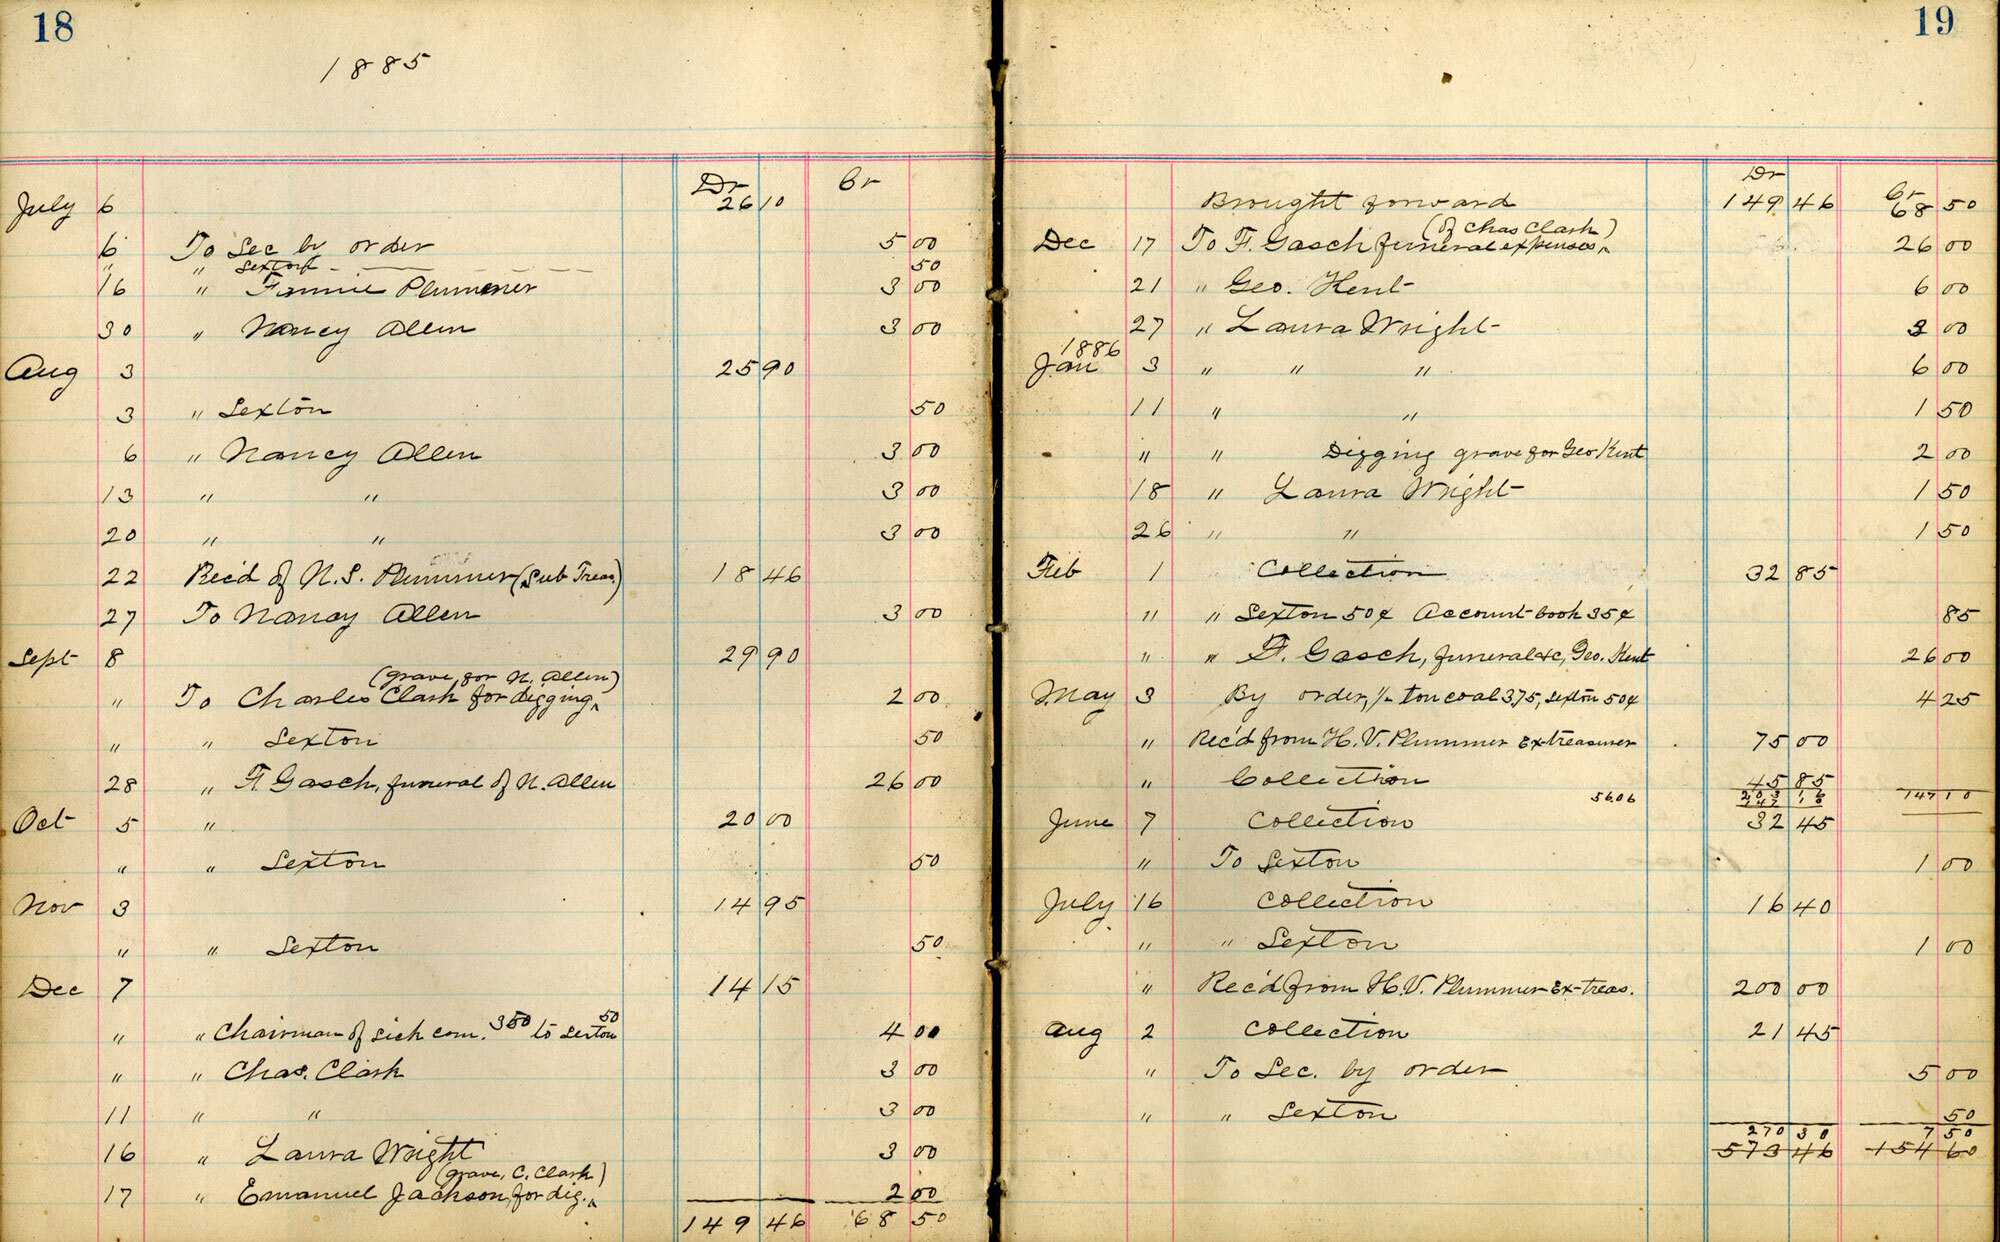 18
1885
Dr Cr
July 6 26 10
6 To Sec by order 5 00
" " Sexton 50
16 " Fannie Plummer 3 00
30 " Nancy Allen 3 00
Aug 3 25 90
3 " Sexton 50
6 " Nancy Allen 3 00
13 " " 3 00
20 " " 3 00
22 Rec'd of N. S. Plummer (Sub Treas.) 18 46
27 To Nancy Allen 3 00
Sept 8 29 90
(grave for N. Allen)
" To Charles Clark for digging^ 2 00
" " Sexton 50
28 " F Gasch, funeral of N. Allen 26 00
Oct 5 " 20 00
" " Sexton 50
Nov 3 14 95
" " Sexton 50
Dec 7 14 15
" " Chairman of sick com. 350 to sexton 50 4 00
" " Chas. Clark 3 00
11 " " 3 00
16 " Laura Wright 3 00
(grave, C. Clark)
17 " Emanuel Jackson, for dig.^ 2 00
149 46 68 50
19
Dr Cr
Brought forward 149 46 68 50
(of Chas Clark)
Dec 17 To F. Gasch funeral expenses^ 26 00
21 " Geo. Kent 6 00
27 " Laura Wright 3 00
1886
Jan 3 " " " 6 00
11 " " 1 50
" " Digging grave for Geo Kent 2 00
18 " Laura Wright 1 50
26 " " 1 50
Feb 1 Collection 32 85
" " Sexton 50¢ Account book 35¢ 85
" " F. Gasch, funeral &c, Geo. Kent 26 00
May 3 By order, ton coal 3.75, sexton 50¢ 4 25
" Rec'd from H. V. Plummer Ex-treasurer 75 00
" Collection 45 85
56.06 203 16 147 10
147 10
June 7 Collection 32 45
" To Sexton 1 00
July 16 Collection 16 40
" " Sexton 1 00
" Rec'd from H. V. Plummer Ex-treas. 200 00
Aug 2 Collection 21 45
" To Sec. by order 5 00
" " Sexton 50
270 30 7 50
573 46 154 60